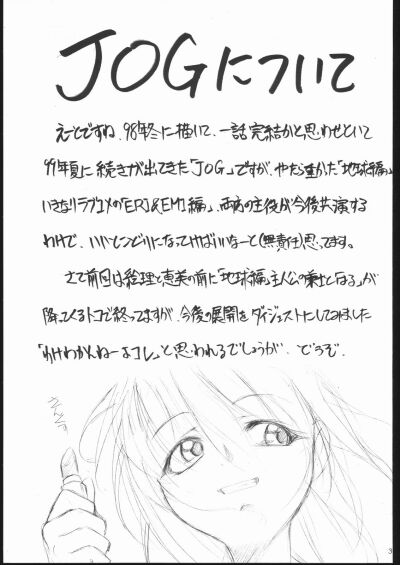 JOGについて
えーとですね、98年冬に描いて、一話完結かと思わせといて
99年夏に続きが出てきた「JOG」ですが、やたら重かった「地球編」
いきなりラブコメの「ERI&EMI編」、両者の主役が今後共演する
わけで、いいとこどりになってけばいいなーと(無責任)思ってます。
さて前回は絵理と恵美の前に「地球編」主人公の乗士となる」が
降ってくるトコで終ってますが、今後の展開をダイジェストにしてみました
「わけわかんねーよコレ」と思われるでしょうが、どうぞ.
3